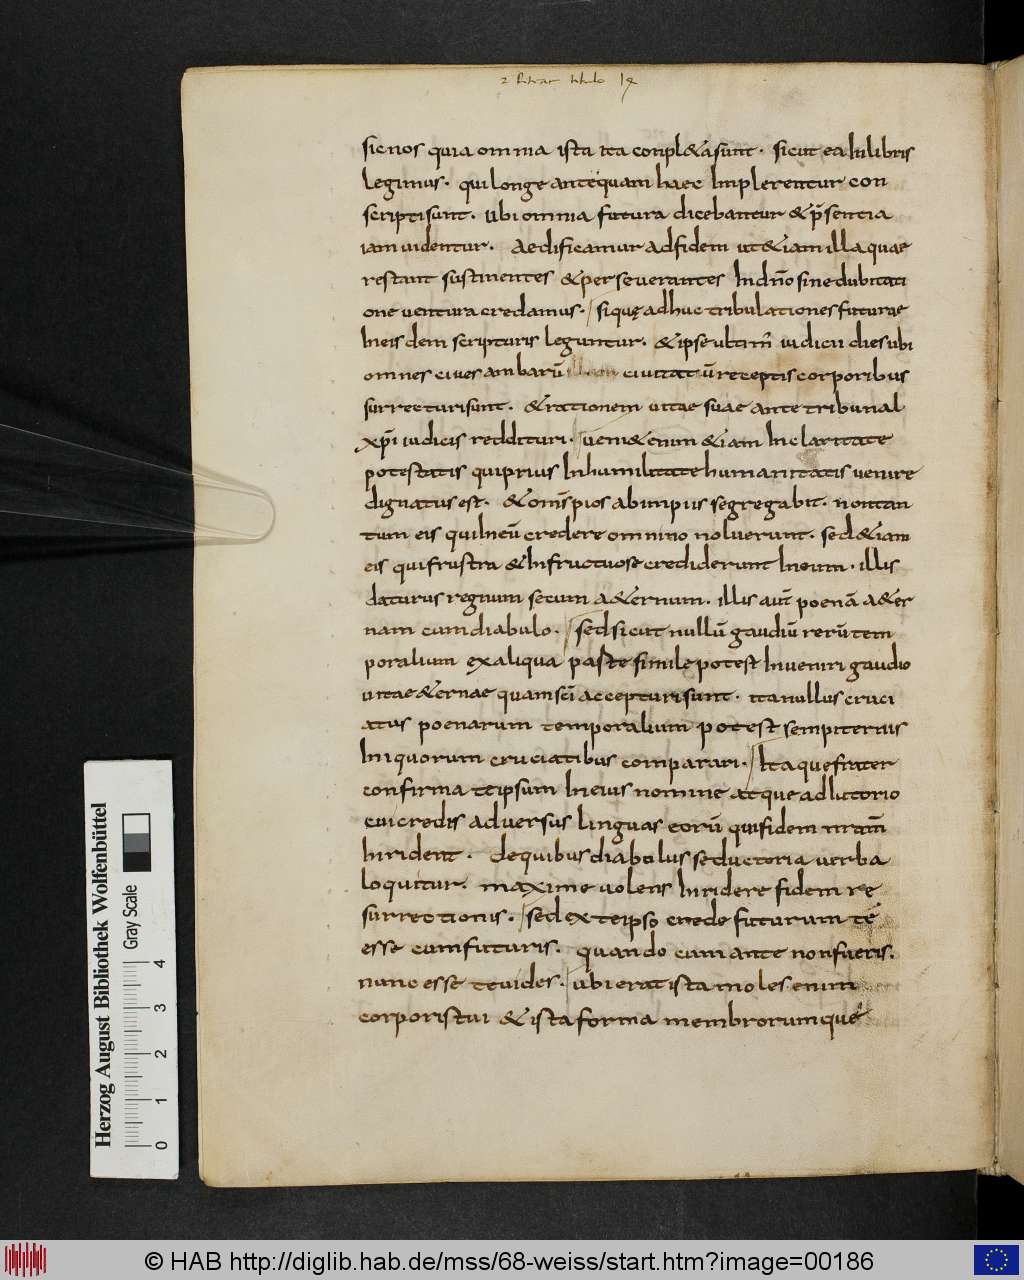 sic nos quia omnia ista ita conpl&a sunt · sicut ea in libris
legimus · qui longe antequam haec implerentur con
scripti sunt · Ubi omnia futura dicebantur & p̄sentia
iam uidentur · Aedificamur ad fidem ut &iam illa quae
restant sustinentes & perseuerantes In dn̄o sine dubitati
one uentura credamus · siquę adhuc tribulationes futurae
In eisdem scripturis leguntur · & ipse ultim' iudicii dies ubi
omnes ciues ambarū ciuitatū receptis corporibus
surrecturi sunt · & rationem uitae suae ante tribunal
xp̄i iudicis reddituri · ueni& enim &iam In claritate
potestatis qui prius In humilitate humanitatis uenire
dignatus est · & om̄s pios ab impiis segregabit · non tan
tum eis qui In eū credere omnino noluerunt · sed &iam
eis qui frustra & Infructuose crediderunt In eum · illis
daturus regnum secum a&ernum · illis aut̄ poenā a&er
nam cum diabulo · sed sicut nullū gaudiū rerū tem
poralium ex aliqua parte simile potest Inueniri gaudio
uitae &ernae quam sc̄i accepturi sunt · ita nullus cruci
atus poenarum temporalium potest sempiternis
Iniquorum cruciatibus comparari · Itaque frater
confirma te ipsum In eius nomine atque adiutorio
cui credis aduersus linguas eorū qui fidem nr̄am
Inrident · de quibus diabulus seductoria uerba
loquitur · maxime uolens Inridere fidem re
surrectionis · sed ex te ipso crede futurum te
esse cum futuris · quando cum ante non fueris ·
nunc esse te uides · ubi erat ista moles enim
corporis tui & ista forma membrorumque
Herzog August Bibliothek Wolfenbüttel
Gray Scale
0 1 2 3 4
© HAB http://diglib.hab.de/mss/68-weiss/start.htm?image=00186